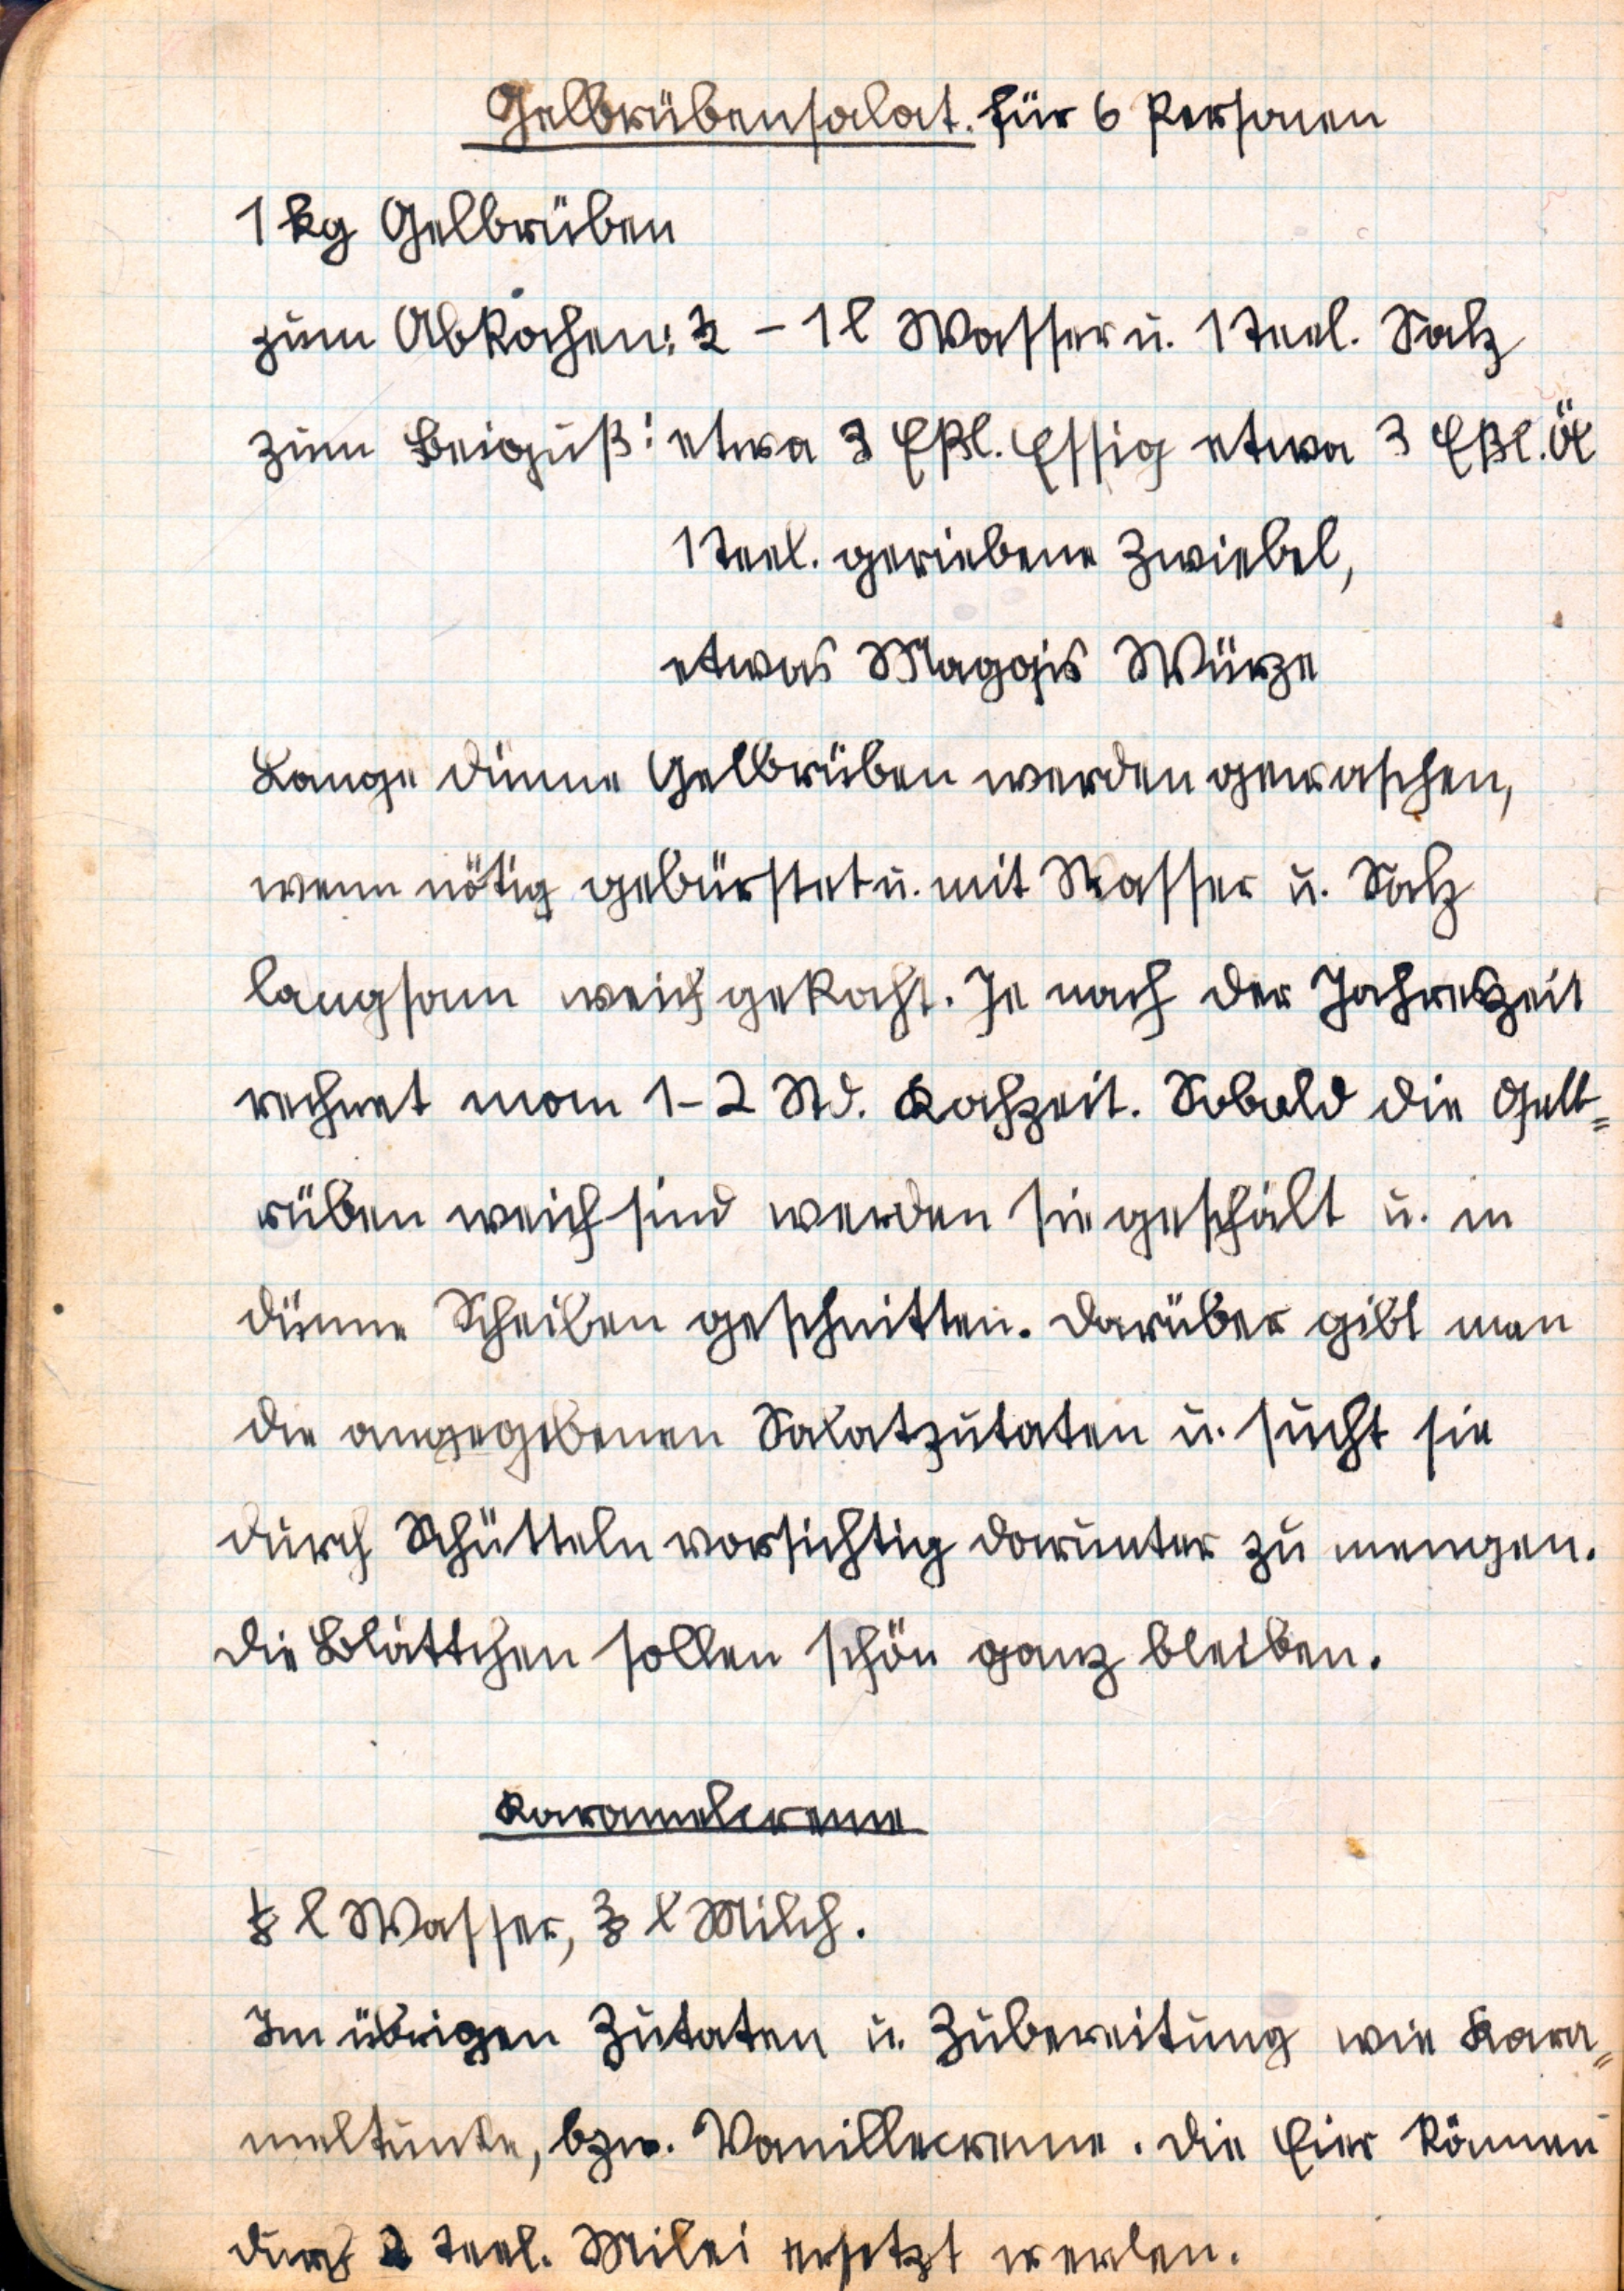 Gelbrübensalat. für 6 Personen
1 kg Gelbrüben
zum Abkochen: - 1 l Wasser u. 1 Teel. Salz
zum Beiguß: etwa 3 Eßl. Essig etwa 3 Eßl. Öl
1 Teel. geriebene Zwiebel,
etwas Maggis Würze
Lange dünne Gelbrüben werden gewaschen,
wenn nötig gebürstet u. mit Wasser u. Salz
langsam weich gekocht. Je nach der Jahreszeit
rechnet man 1-2 Std. Kochzeit. Sobald die Gelb=
rüben weich sind werden sie geschält u. in
dünne Scheiben geschnitten. Darüber gibt man
die angegebenen Salatzutaten u. sucht sie
durch Schütteln vorsichtig darunter zu mengen.
Die Blättchen sollen schön ganz bleiben.
Karamelcreme
l Wasser, l Milch.
Im übrigen Zutaten u. Zubereitung wie Kara=
meltunke, bzw. Vanillecreme. Die Eier können
durch 2 Teel. Milei ersetzt werden.